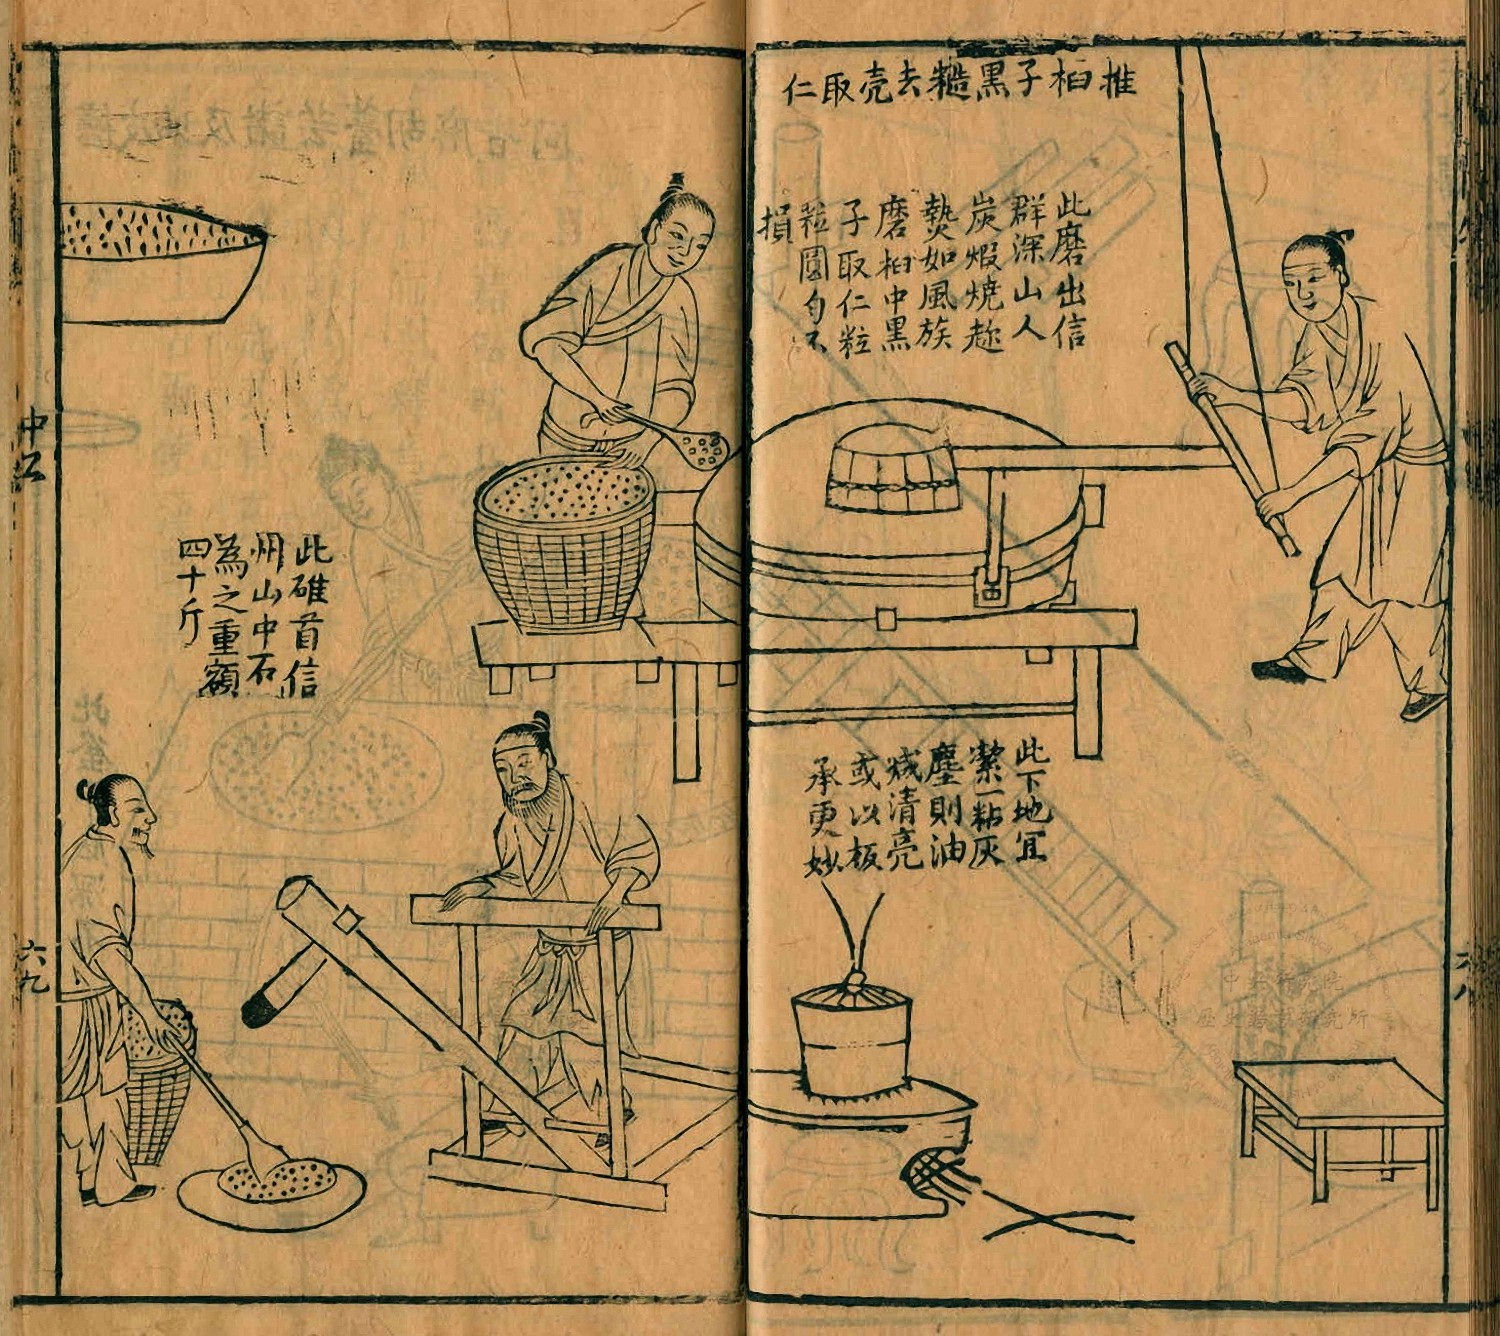 推桕子黑糙去壳取仁
此磨出信
群深山人
炭煅燒趂
熱如風族
磨桕中黑
子取仁粒
粒圓勻不
損
此下地宜
潔一粘灰
塵則油
減清亮
或以板
承更妙
六八
此碓首信
州山中石
為之重額
四十斤
中
六九